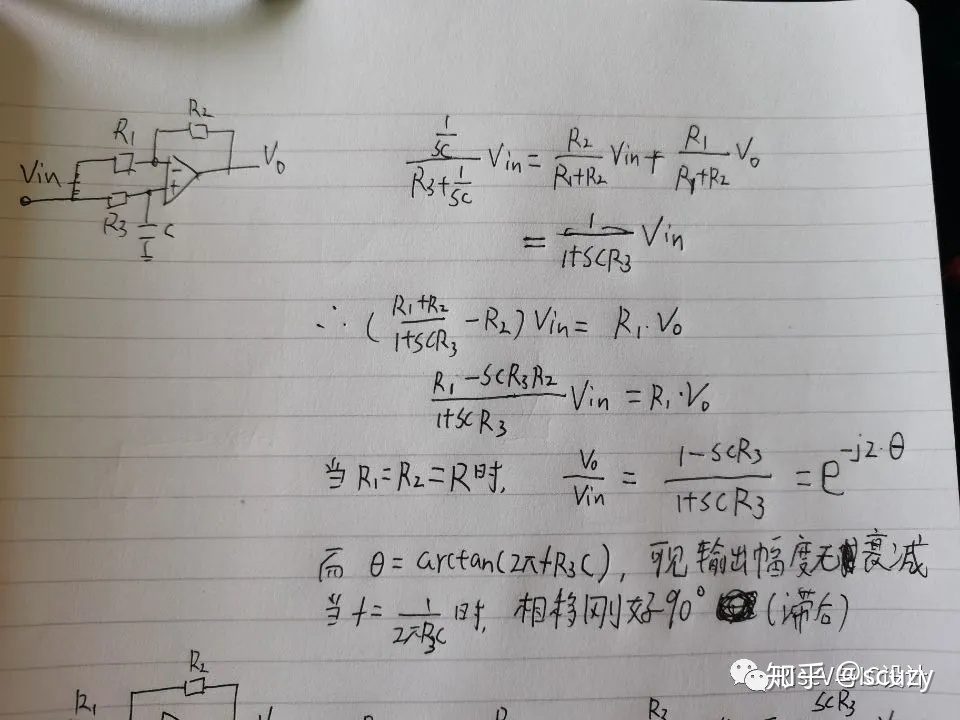 R2
R1
Vin
Vo
R3
C
\frac{\frac{1}{SC}}{R3+\frac{1}{SC}} Vin = \frac{R2}{R1+R2} Vin + \frac{R1}{R1+R2} Vo
= \frac{1}{1+SCR3} Vin
∴ (\frac{R1+R2}{1+SCR3} - R2) Vin = R1·Vo
\frac{R1-SCR3R2}{1+SCR3} Vin = R1·Vo
当 R1=R2=R时, \frac{Vo}{Vin} = \frac{1-SCR3}{1+SCR3} = e^{-j2·θ}
而 θ = arctan(2πfR3C), 可见输出幅度无衰减
当 f = \frac{1}{2πR3C} 时, 相移刚好90° (滞后)
R2
R1
R2
SCR3
知乎 @scuzy